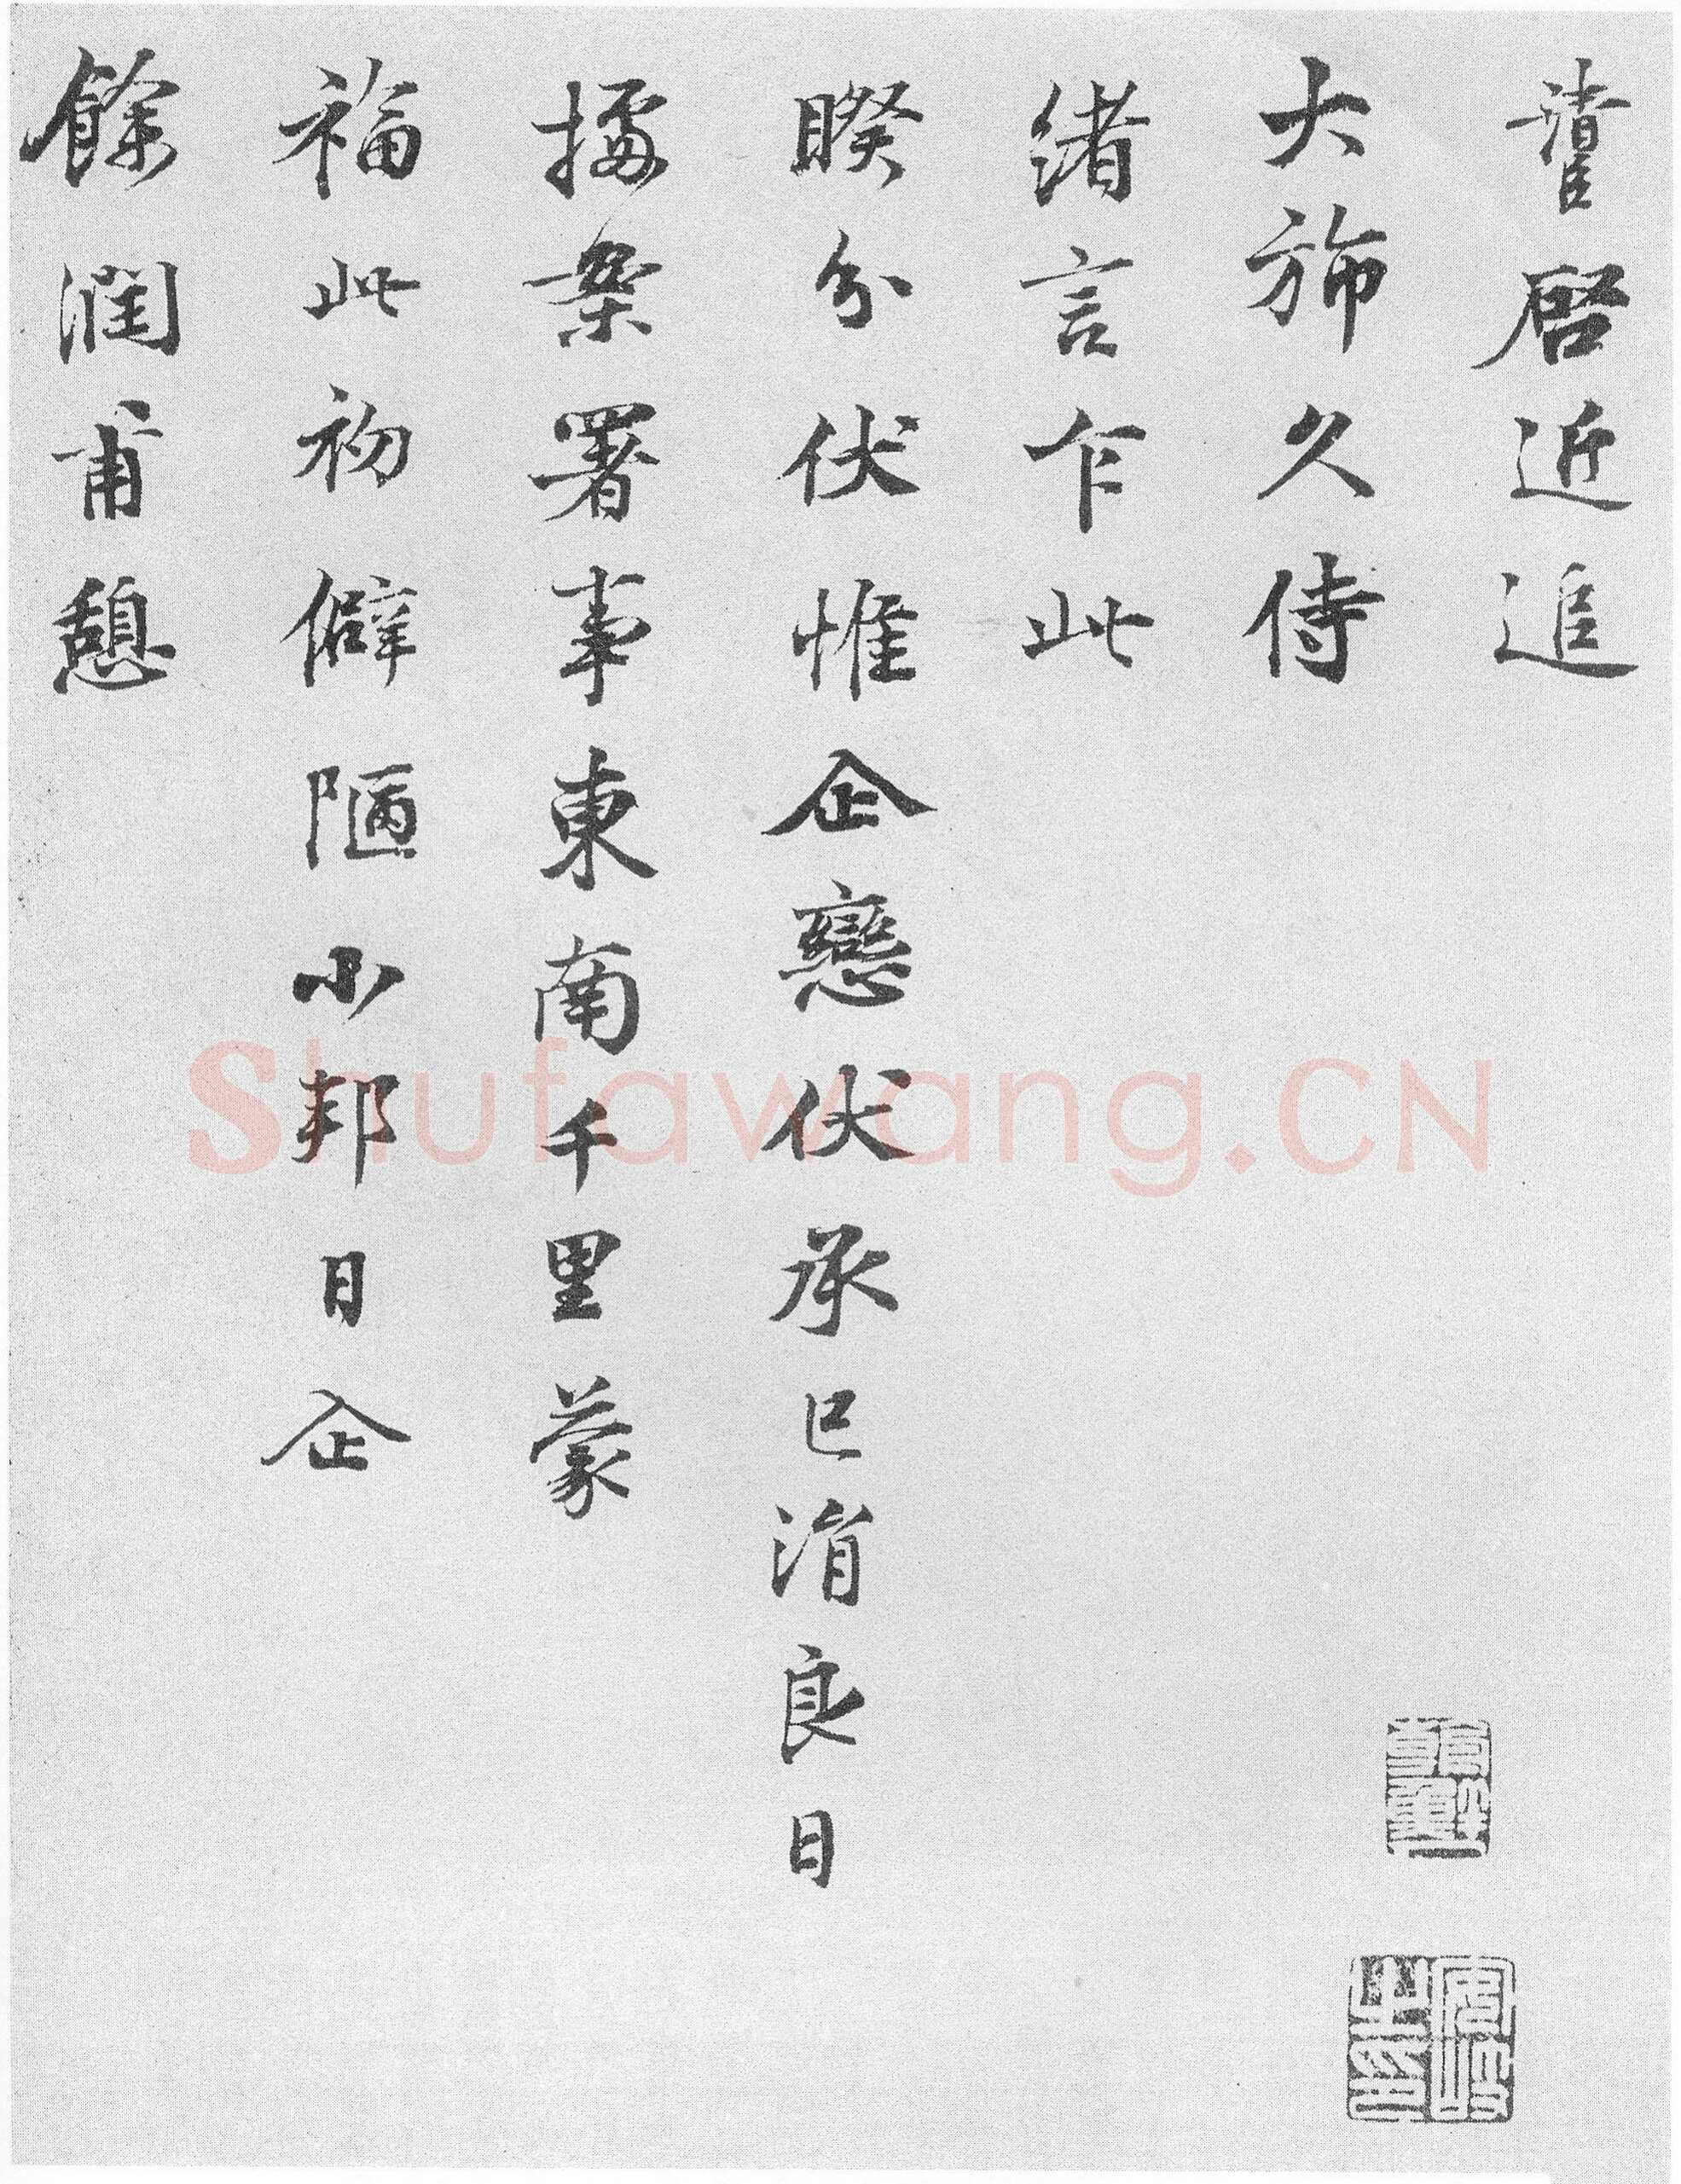 啓近追
大旆久侍
緒言乍此
睽分伏惟企戀伏承已涓良日
據案署事東南千里蒙
福此初僻陋小邦日企
餘潤甫憩
Shufawang.CN